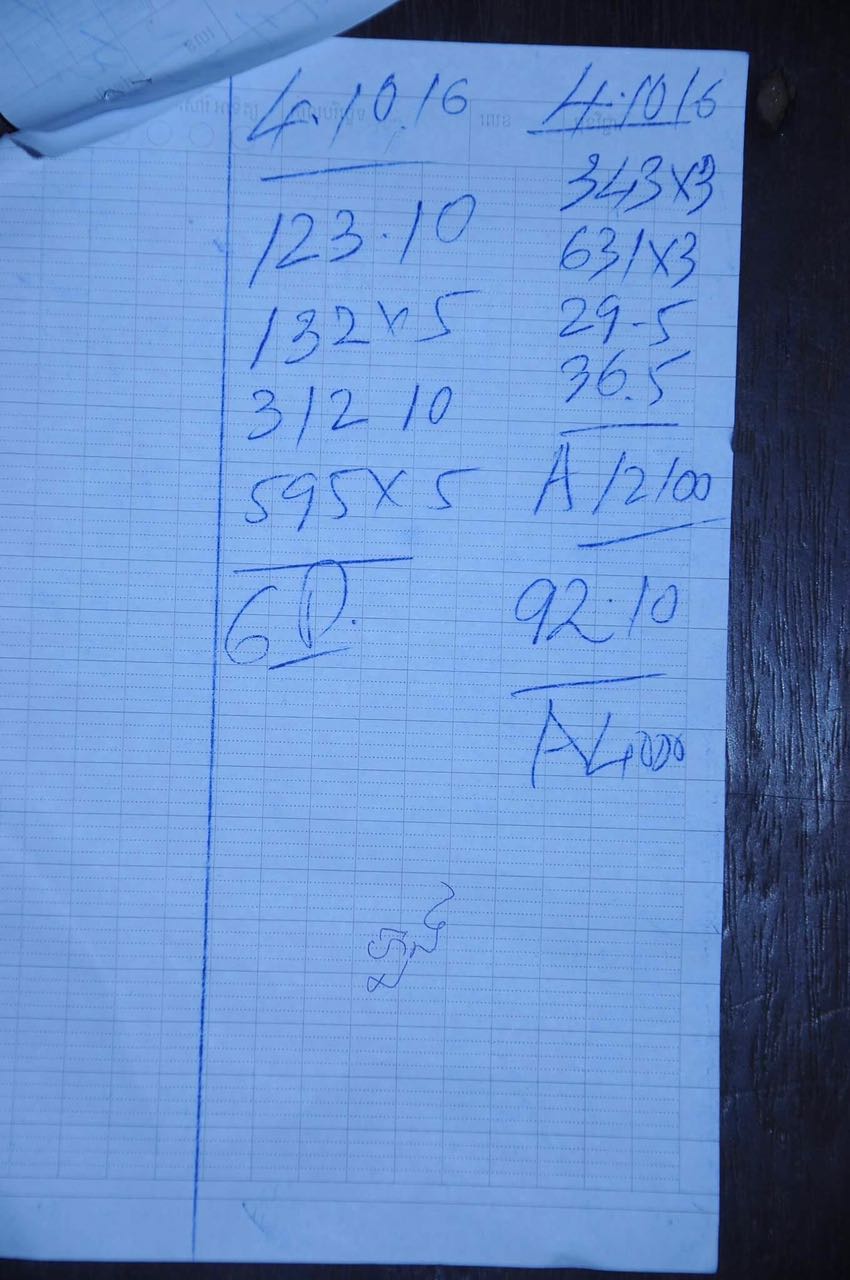 4.10.16
123.10
132x5
312 10
595x5
6D.
4.1016
343x3
631x3
29-5
36.5
A 12100
92.10
A4000